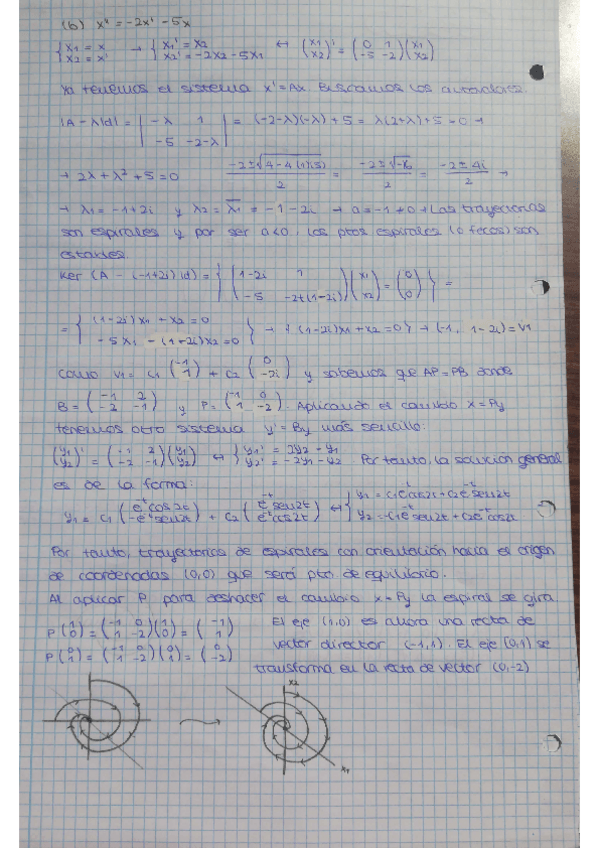 (b) x'' = -2x' - 5x
{x1 = x, x2 = x' → {x1' = x2, x2' = -2x2 - 5x1 ↔ (x1 x2)' = (0 1; -5 -2)(x1 x2)
Ya tenemos el sistema x' = Ax. Buscamos los autovalores.
|A - λId| = |-λ 1; -5 -2-λ| = (-2-λ)(-λ) + 5 = λ(2+λ) + 5 = 0 →
→ 2λ + λ² + 5 = 0 (-2 ± √(4 - 4(1)(5)))/2 = (-2 ± √-16)/2 = (-2 ± 4i)/2 →
→ λ1 = -1 + 2i y λ2 = λ̄1 = -1 - 2i → a = -1 ≠ 0 → Las trayectorias
son espirales y por ser a<0, los ptos espirales (o focos) son
estables.
Ker (A - (-1+2i)Id) = { (1-2i 1; -5 -2+(1-2i))(x1 x2) = (0 0) } =
= { (1-2i)x1 + x2 = 0, -5x1 - (1+2i)x2 = 0 } → {(1-2i)x1 + x2 = 0} → (-1, 1-2i) = v1
Como v1 = c1(-1 1) + c2(0 -2i) y sabemos que AP = PB donde
B = (-1 2; -2 -1) y P = (-1 0; 1 -2). Aplicando el cambio x = Py
tenemos otro sistema y' = By más sencillo:
(y1 y2)' = (-1 2; -2 -1)(y1 y2) ↔ {y1' = 2y2 - y1, y2' = -2y1 - y2. Por tanto, la solución general
es de la forma:
y1 = c1(e^-t cos2t; -e^-t sen2t) + c2(e^-t sen2t; e^-t cos2t) ↔ {y1 = c1e^-t cos2t + c2e^-t sen2t, y2 = -c1e^-t sen2t + c2e^-t cos2t
Por tanto, trayectorias de espirales con orientación hacia el origen
de coordenadas (0,0) que será pto. de equilibrio.
Al aplicar P para deshacer el cambio x = Py la espiral se gira.
P(1 0) = (-1 0; 1 -2)(1 0) = (-1 1) El eje (1,0) es ahora una recta de
vector director (-1,1). El eje (0,1) se
P(0 1) = (-1 0; 1 -2)(0 1) = (0 -2)
transforma en la recta de vector (0,-2)
x2
x1